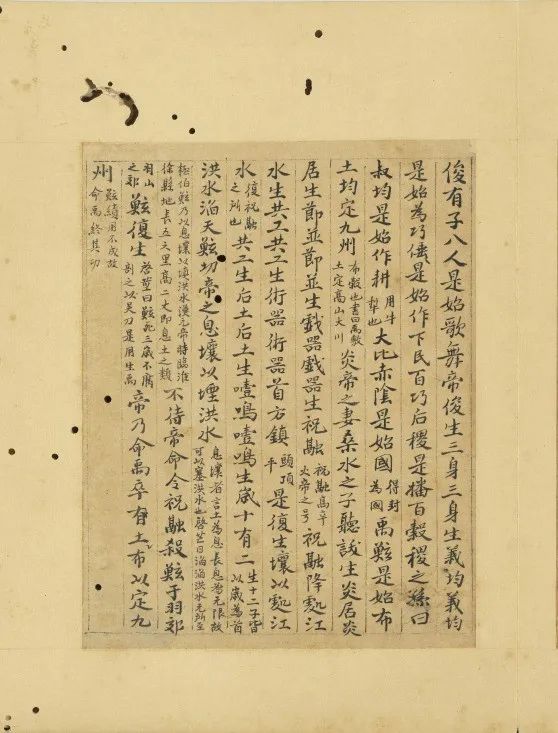 俊有子八人是始歌舞帝俊生三身三身生義均義均
是始為巧倕是始作下民百巧后稷是播百穀稷之孫曰
叔均是始作耕用牛犂也大比赤陰是始國得封為國禹鮌是始布
土均定九州布敷也書曰禹敷土定高山大川炎帝之妻桑水之子聽訞生炎居炎
居生節並節並生戲器戲器生祝融祝融高辛火帝之号祝融降處江
水生共工共工生術器術器首方鎮頭頂平是復生壤以處江
水復祝融之所也共工生后土后土生噎鳴噎鳴生歲十有二生十二子皆以歲為首
洪水滔天鮌切帝之息壤以堙洪水息壤者言土為息長息為无限故可以塞洪水也啓曰滔滔洪水无所至
極伯鮌乃以息壤以填洪水漢元帝時臨淮徐縣地長五六里高二丈即息土之類不待帝命令祝融殺鮌于羽郊
羽山之郊鮌復生啓曰鮌死三歲不腐剖之以吴刀是用生禹帝乃命禹卒有土布以定九
州鮌績用不成故命禹終其功